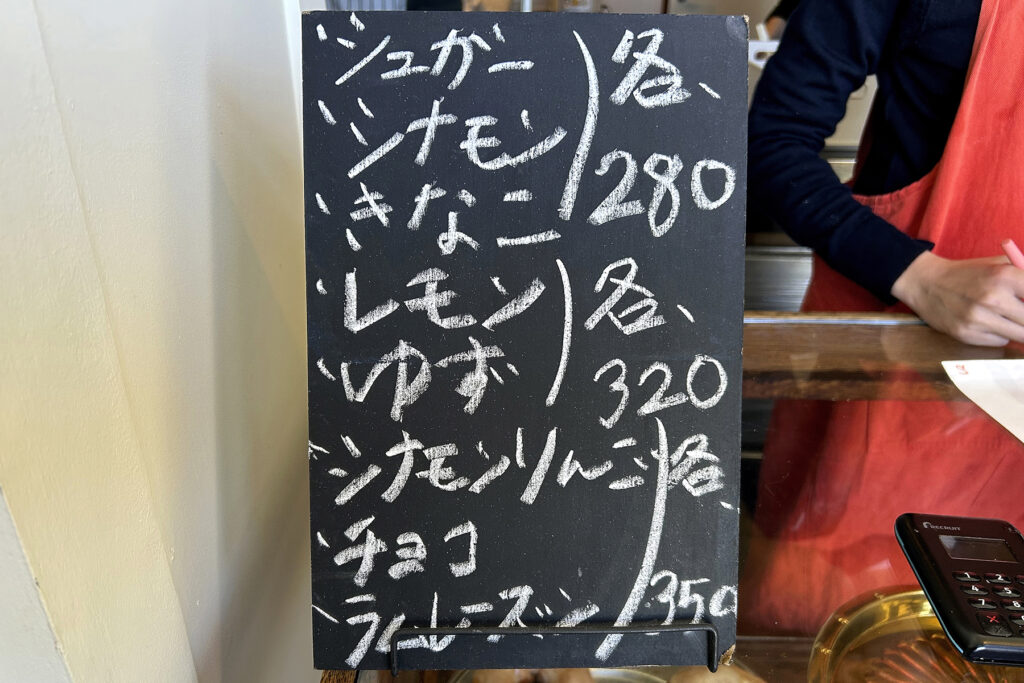 ・シュガー
・シナモン
・きなこ
各、
280
・レモン
・ゆず
各、
320
・シナモンりんご
・チョコ
・ラムレーズン
各、
350
RECRUIT
1 2
4 5
7 8